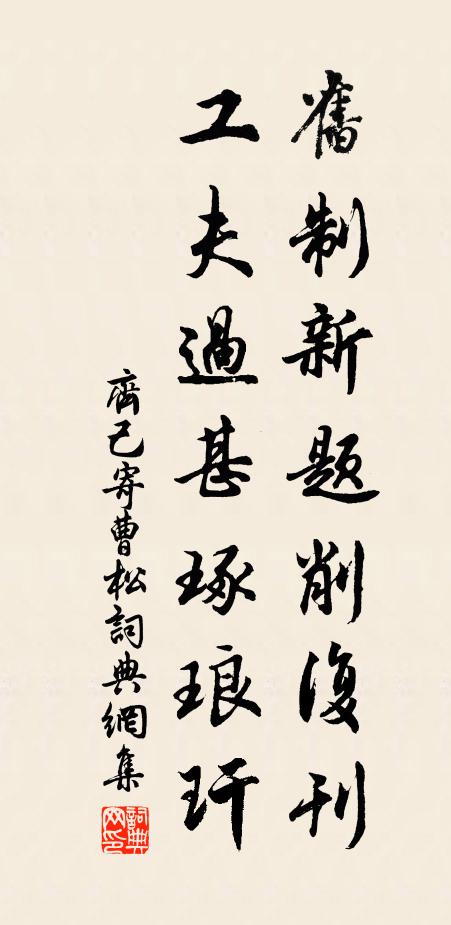 舊制新題削復刊
工夫過甚琢琅玕
齊己寄曹松詞典網集
詞典网印